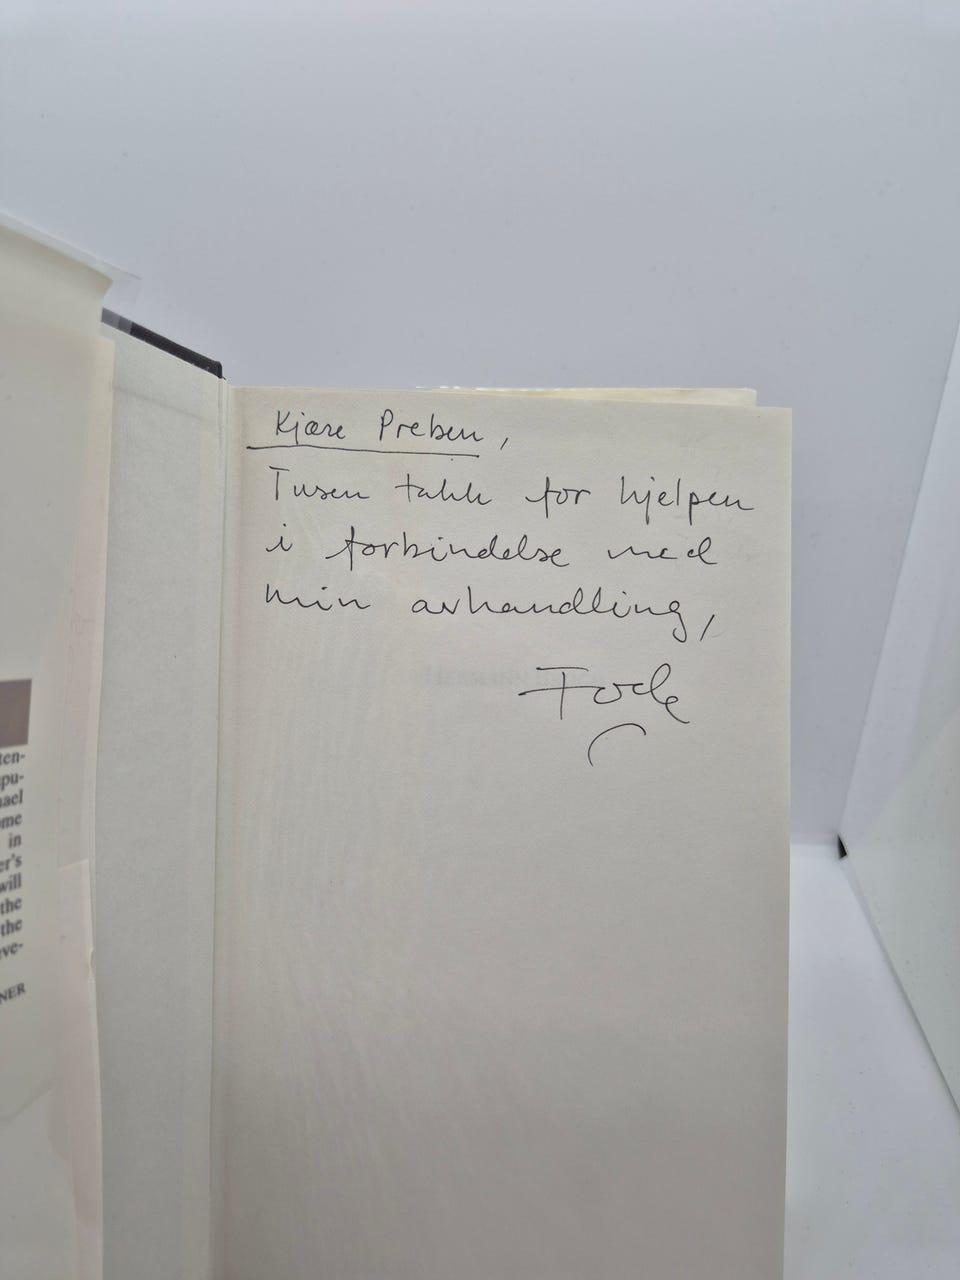 Kjære Preben,
Tusen takk for hjelpen
i forbindelse med
min avhandling,
ten-
pu-
ael
me
in
er's
will
the
the
ve-
NER